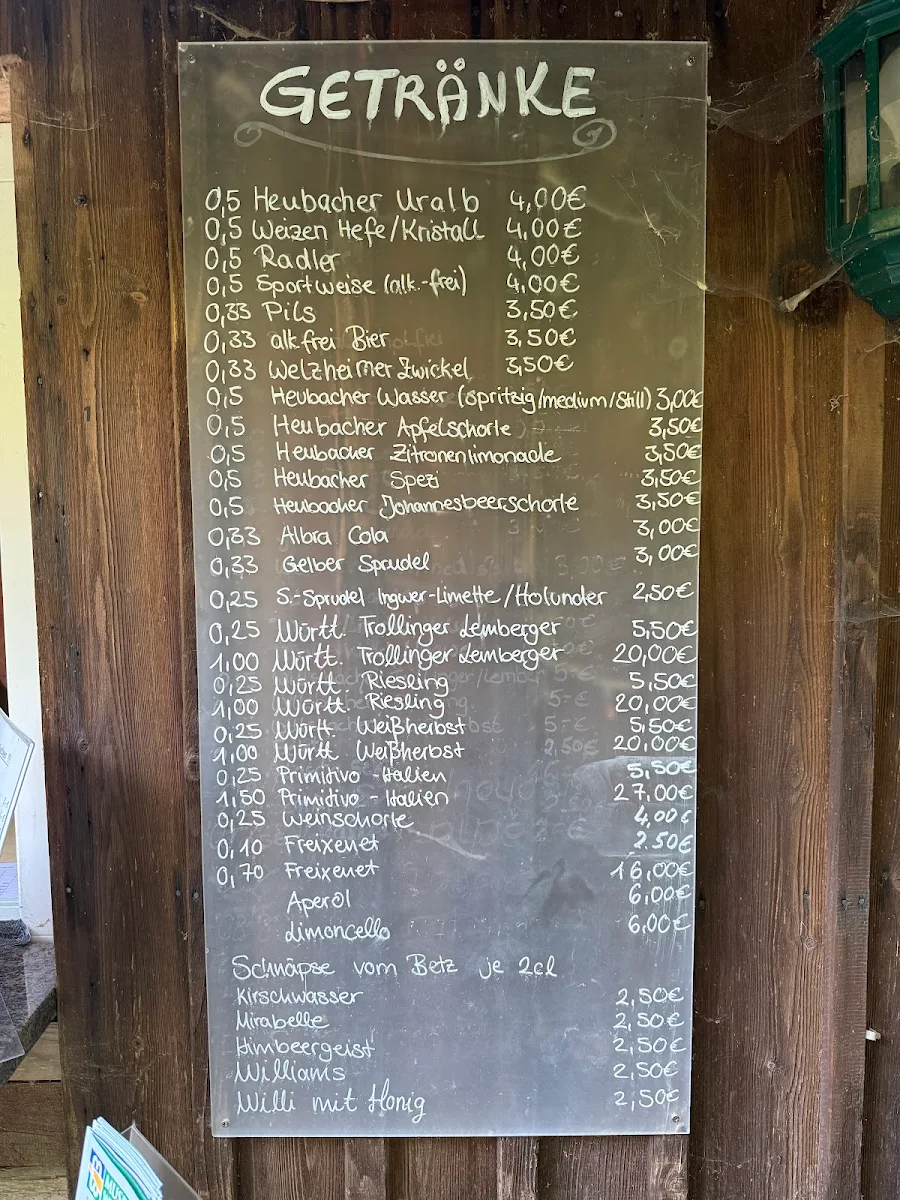 GETRÄNKE
0,5 Heubacher Uralb 4,00€
0,5 Weizen Hefe/Kristall 4,00€
0,5 Radler 4,00€
0,5 Sportweise (alk.-frei) 4,00€
0,33 Pils 3,50€
0,33 alk.frei Bier 3,50€
0,33 Welzheimer Zwickel 3,50€
0,5 Heubacher Wasser (spritzig/medium/still) 3,00€
0,5 Heubacher Apfelschorle 3,50€
0,5 Heubacher Zitronenlimonade 3,50€
0,5 Heubacher Spezi 3,50€
0,5 Heubacher Johannesbeerschorle 3,50€
0,33 Albra Cola 3,00€
0,33 Gelber Sprudel 3,00€
0,25 S.-Sprudel Ingwer-Limette/Holunder 2,50€
0,25 Württ. Trollinger Lemberger 5,50€
1,00 Württ. Trollinger Lemberger 20,00€
0,25 Württ. Riesling 5,50€
1,00 Württ. Riesling 20,00€
0,25 Württ. Weißherbst 5,50€
1,00 Württ. Weißherbst 20,00€
0,25 Primitivo - Italien 5,50€
1,50 Primitivo - Italien 27,00€
0,25 Weinschorle 4,00€
0,10 Freixenet 2.50€
0,70 Freixenet 16,00€
Aperol 6,00€
Limoncello 6,00€
Schnäpse vom Betz je 2cl
Kirschwasser 2,50€
Mirabelle 2,50€
Himbeergeist 2,50€
Williams 2,50€
Willi mit Honig 2,50€